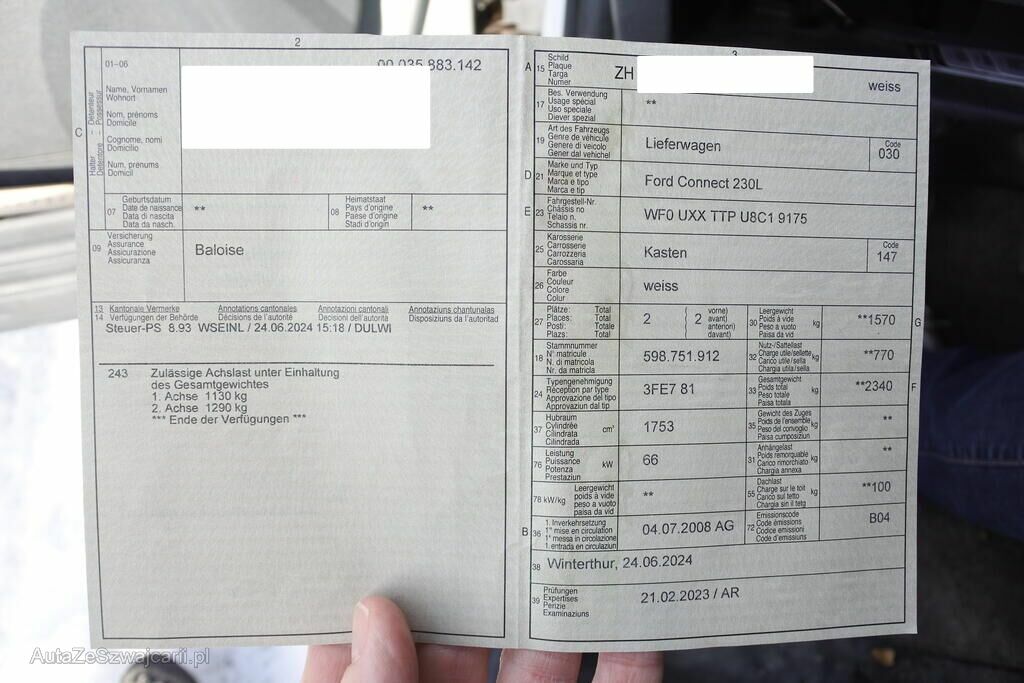 2
01-06
00.035.883.142
C
Halter – Détenteur
Detentore – Possessur
Name, Vornamen
Wohnort
Nom, prénoms
Domicile
Cognome, nomi
Domicilio
Num, prenums
Domicil
07
Geburtsdatum
Date de naissance
Data di nascita
Data da nasch.
**
08
Heimatstaat
Pays d'origine
Paese d'origine
Stadi d'origin
**
09
Versicherung
Assurance
Assicurazione
Assicuranza
Baloise
13
14
Kantonale Vermerke
Verfügungen der Behörde
Annotations cantonales
Décisions de l'autorité
Annotazioni cantonali
Decisioni dell'autorità
Annotaziuns chantunalas
Disposiziuns da l'autoritad
Steuer-PS 8.93 WSEINL / 24.06.2024 15:18 / DULWI
243 Zulässige Achslast unter Einhaltung
des Gesamtgewichtes
1. Achse 1130 kg
2. Achse 1290 kg
*** Ende der Verfügungen ***
3
A
15
Schild
Plaque
Targa
Numer
ZH
weiss
17
Bes. Verwendung
Usage spécial
Uso speciale
Diever spezial
**
19
Art des Fahrzeugs
Genre de véhicule
Genere di veicolo
Gener dal vehichel
Lieferwagen
Code
030
D
21
Marke und Typ
Marque et type
Marca e tipo
Marca e tip
Ford Connect 230L
E
23
Fahrgestell-Nr.
Châssis no
Telaio n.
Schassis nr.
WF0 UXX TTP U8C1 9175
25
Karosserie
Carrosserie
Carrozzeria
Carossaria
Kasten
Code
147
26
Farbe
Couleur
Colore
Colur
weiss
27
Plätze: Total
Places: Total
Posti: Totale
Plazs: Total
2
( 2 vorne)
avant)
anteriori)
davant)
30
Leergewicht
Poids à vide
Peso a vuoto
Paisa da vid
kg
**1570
G
18
Stammnummer
N° matricule
N. di matricola
Nr. da matricla
598.751.912
32
Nutz-/Sattellast
Charge utile/sellette
Carico utile/sella
Chargia utila/sella
kg
**770
24
Typengenehmigung
Réception par type
Approvazione del tipo
Approvaziun dal tip
3FE7 81
33
Gesamtgewicht
Poids total
Peso totale
Paisa totala
kg
**2340
F
37
Hubraum
Cylindrée
Cilindrata
Cilindrada
cm³
1753
35
Gewicht des Zuges
Poids de l'ensemble
Peso del convoglio
Paisa cumposiziun
kg
**
76
Leistung
Puissance
Potenza
Prestaziun
kW
66
31
Anhängelast
Poids remorquable
Carico rimorchiato
Chargia annexa
kg
**
78 kW/kg
Leergewicht
poids à vide
peso a vuoto
paisa da vid
**
55
Dachlast
Charge sur le toit
Carico sul tetto
Chargia sin il tetg
kg
**100
B
36
1. Inverkehrsetzung
1re mise en circulation
1a messa in circolazione
1. entrada en circulaziun
04.07.2008 AG
72
Emissionscode
Code émissions
Codice emissioni
Code d'emissiuns
B04
38
Winterthur, 24.06.2024
39
Prüfungen
Expertises
Perizie
Examinaziuns
21.02.2023 / AR
AutaZeSzwajcarii.pl